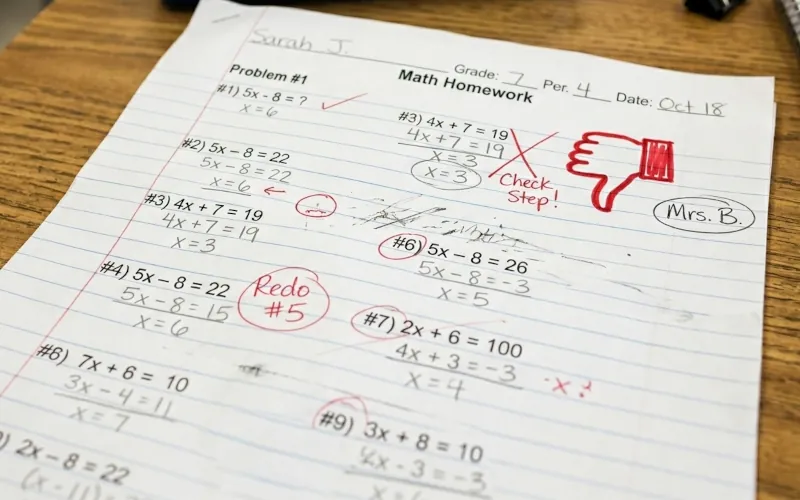 Sarah J.
Grade: 7 Per. 4 Date: Oct 18
Math Homework
Problem #1
#1) 5x - 8 = ?
x = 6
#2) 5x - 8 = 22
5x - 8 = 22
x = 6 ←
#3) 4x + 7 = 19
4x + 7 = 19
x = 3
#4) 5x - 8 = 22
5x - 8 = 15
x = 6
Redo
#5
#6) 7x + 6 = 10
3x - 4 = 11
x = 7
) 2x - 8 = 22
#3) 4x + 7 = 19
4x + 7 = 19
x = 3
x = 3
Check
Step!
Mrs. B.
#6) 5x - 8 = 26
5x - 8 = -3
x = 5
#7) 2x + 6 = 100
4x + 3 = -3
x = 4
#9) 3x + 8 = 10
x - 3 = -3